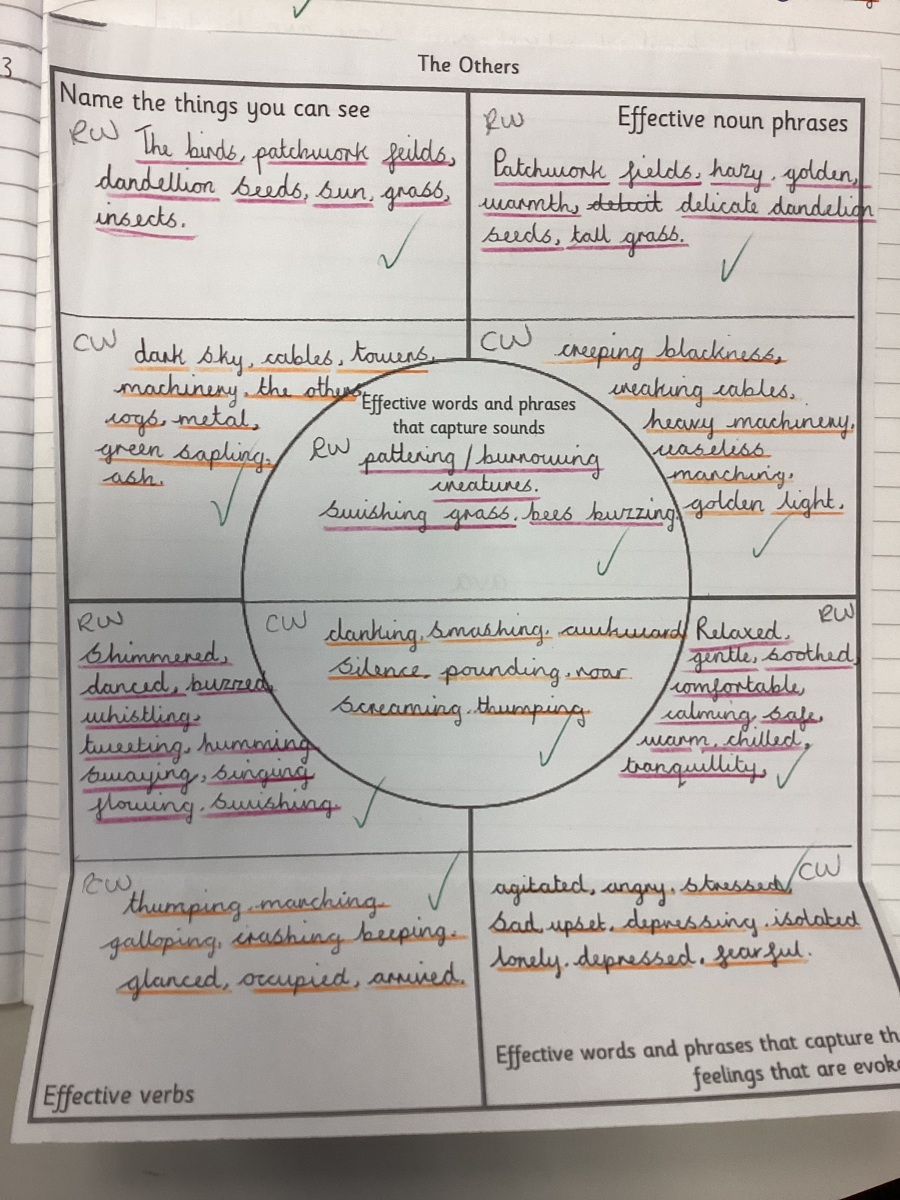 3
The Others
Name the things you can see
RW The birds, patchwork feilds,
dandellion seeds, sun, grass,
insects.
RW Effective noun phrases
Patchwork fields, hazy, golden,
warmth, delicate dandelion
seeds, tall grass.
CW dark sky, cables, towers,
machinery, the others,
cogs, metal,
green sapling,
ash.
CW creeping blackness,
creaking cables,
heavy machinery,
ceaseless
marching.
golden light.
Effective words and phrases
that capture sounds
RW pattering / burrowing
creatures.
swishing grass, bees buzzing.
CW clanking, smashing, awkward
silence, pounding, roar
screaming, thumping
RW
shimmered,
danced, buzzed,
whistling,
tweeting, humming
swaying, singing
flowing, swishing.
RW
Relaxed,
gentle, soothed,
comfortable,
calming, safe,
warm, chilled,
tranquillity,
RW
thumping, marching
galloping, crashing beeping.
glanced, occupied, arrived.
Effective verbs
CW
agitated, angry, stressed,
sad, upset, depressing, isolated
lonely, depressed, fearful.
Effective words and phrases that capture th
feelings that are evoke